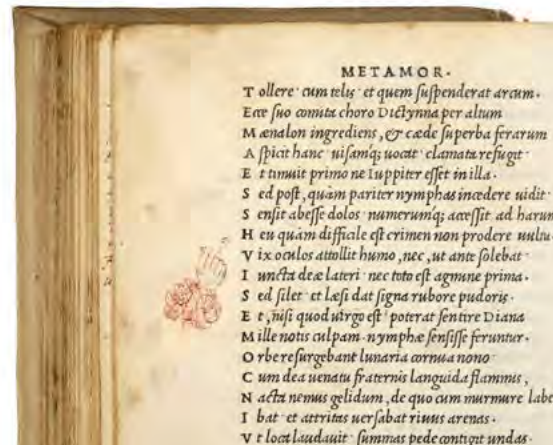 METAMOR.
T ollere· cum telis· et quem ſuſpenderat arcum.
Ecce ſuo comita choro Dictynna per altum
M ænalon ingrediens, & cæde ſuperba ferarum
A ſpicit hanc· uiſamq; uocat· clamata refugit·
E t timuit primo ne Iuppiter eſſet in illa.
S ed poſt, quàm pariter nymphas incedere uidit·
S enſit abeſſe dolos· numerumq; acceſſit ad harum
H eu quàm difficile eſt crimen non prodere uultu·
V ix oculos attollit humo, nec, ut ante ſolebat·
I uncta deæ lateri· nec toto eſt agmine prima.
S ed ſilet· et læſi dat ſigna rubore pudoris.
E t, niſi quod uirgo eſt· poterat ſentire Diana
M ille notis culpam. nymphæ ſenſiſſe feruntur.
O rbe reſurgebant lunaria cornua nono·
C um dea uenatu fraternis languida flammis,
N acta nemus gelidum, de quo cum murmure labe
I bat· et attritas uerſabat riuus arenas.
V t loca laudauit· ſummas pede contigit undas.